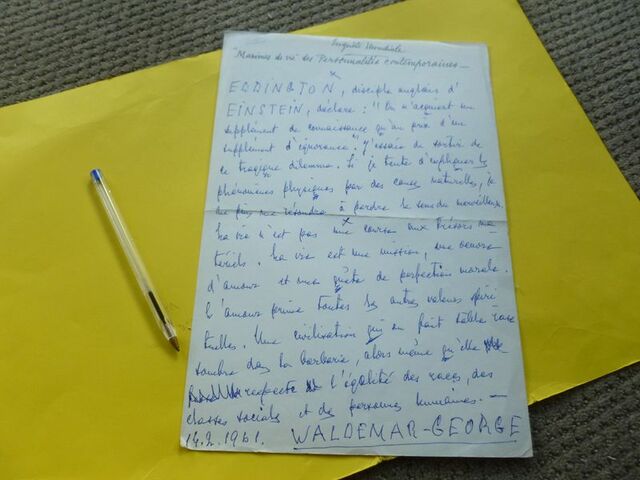 Enquête Mondiale
"Maximes de vie des Personnalités contemporaines —
EDDINGTON, disciple anglais d'
EINSTEIN, déclare : "On n'acquiert un
supplément de connaissance qu'au prix d'un
supplément d'ignorance." J'essaie de sortir de
ce tragique dilemme. Si je tente d'expliquer les
phénomènes physiques par des causes naturelles, je
ne puis me résoudre à perdre le sens du merveilleux.
La vie n'est pas une course aux trésors ma-
tériels. La vie est une mission, une oeuvre
d'amour et une quête de perfection morale.
L'amour prime toutes les autres valeurs spiri-
tuelles. Une civilisation qui en fait table rase
sombre dans la barbarie, alors même qu'elle
respecte l'égalité des races, des
classes sociales et des personnes humaines. —
14.2.1961. WALDEMAR-GEORGE